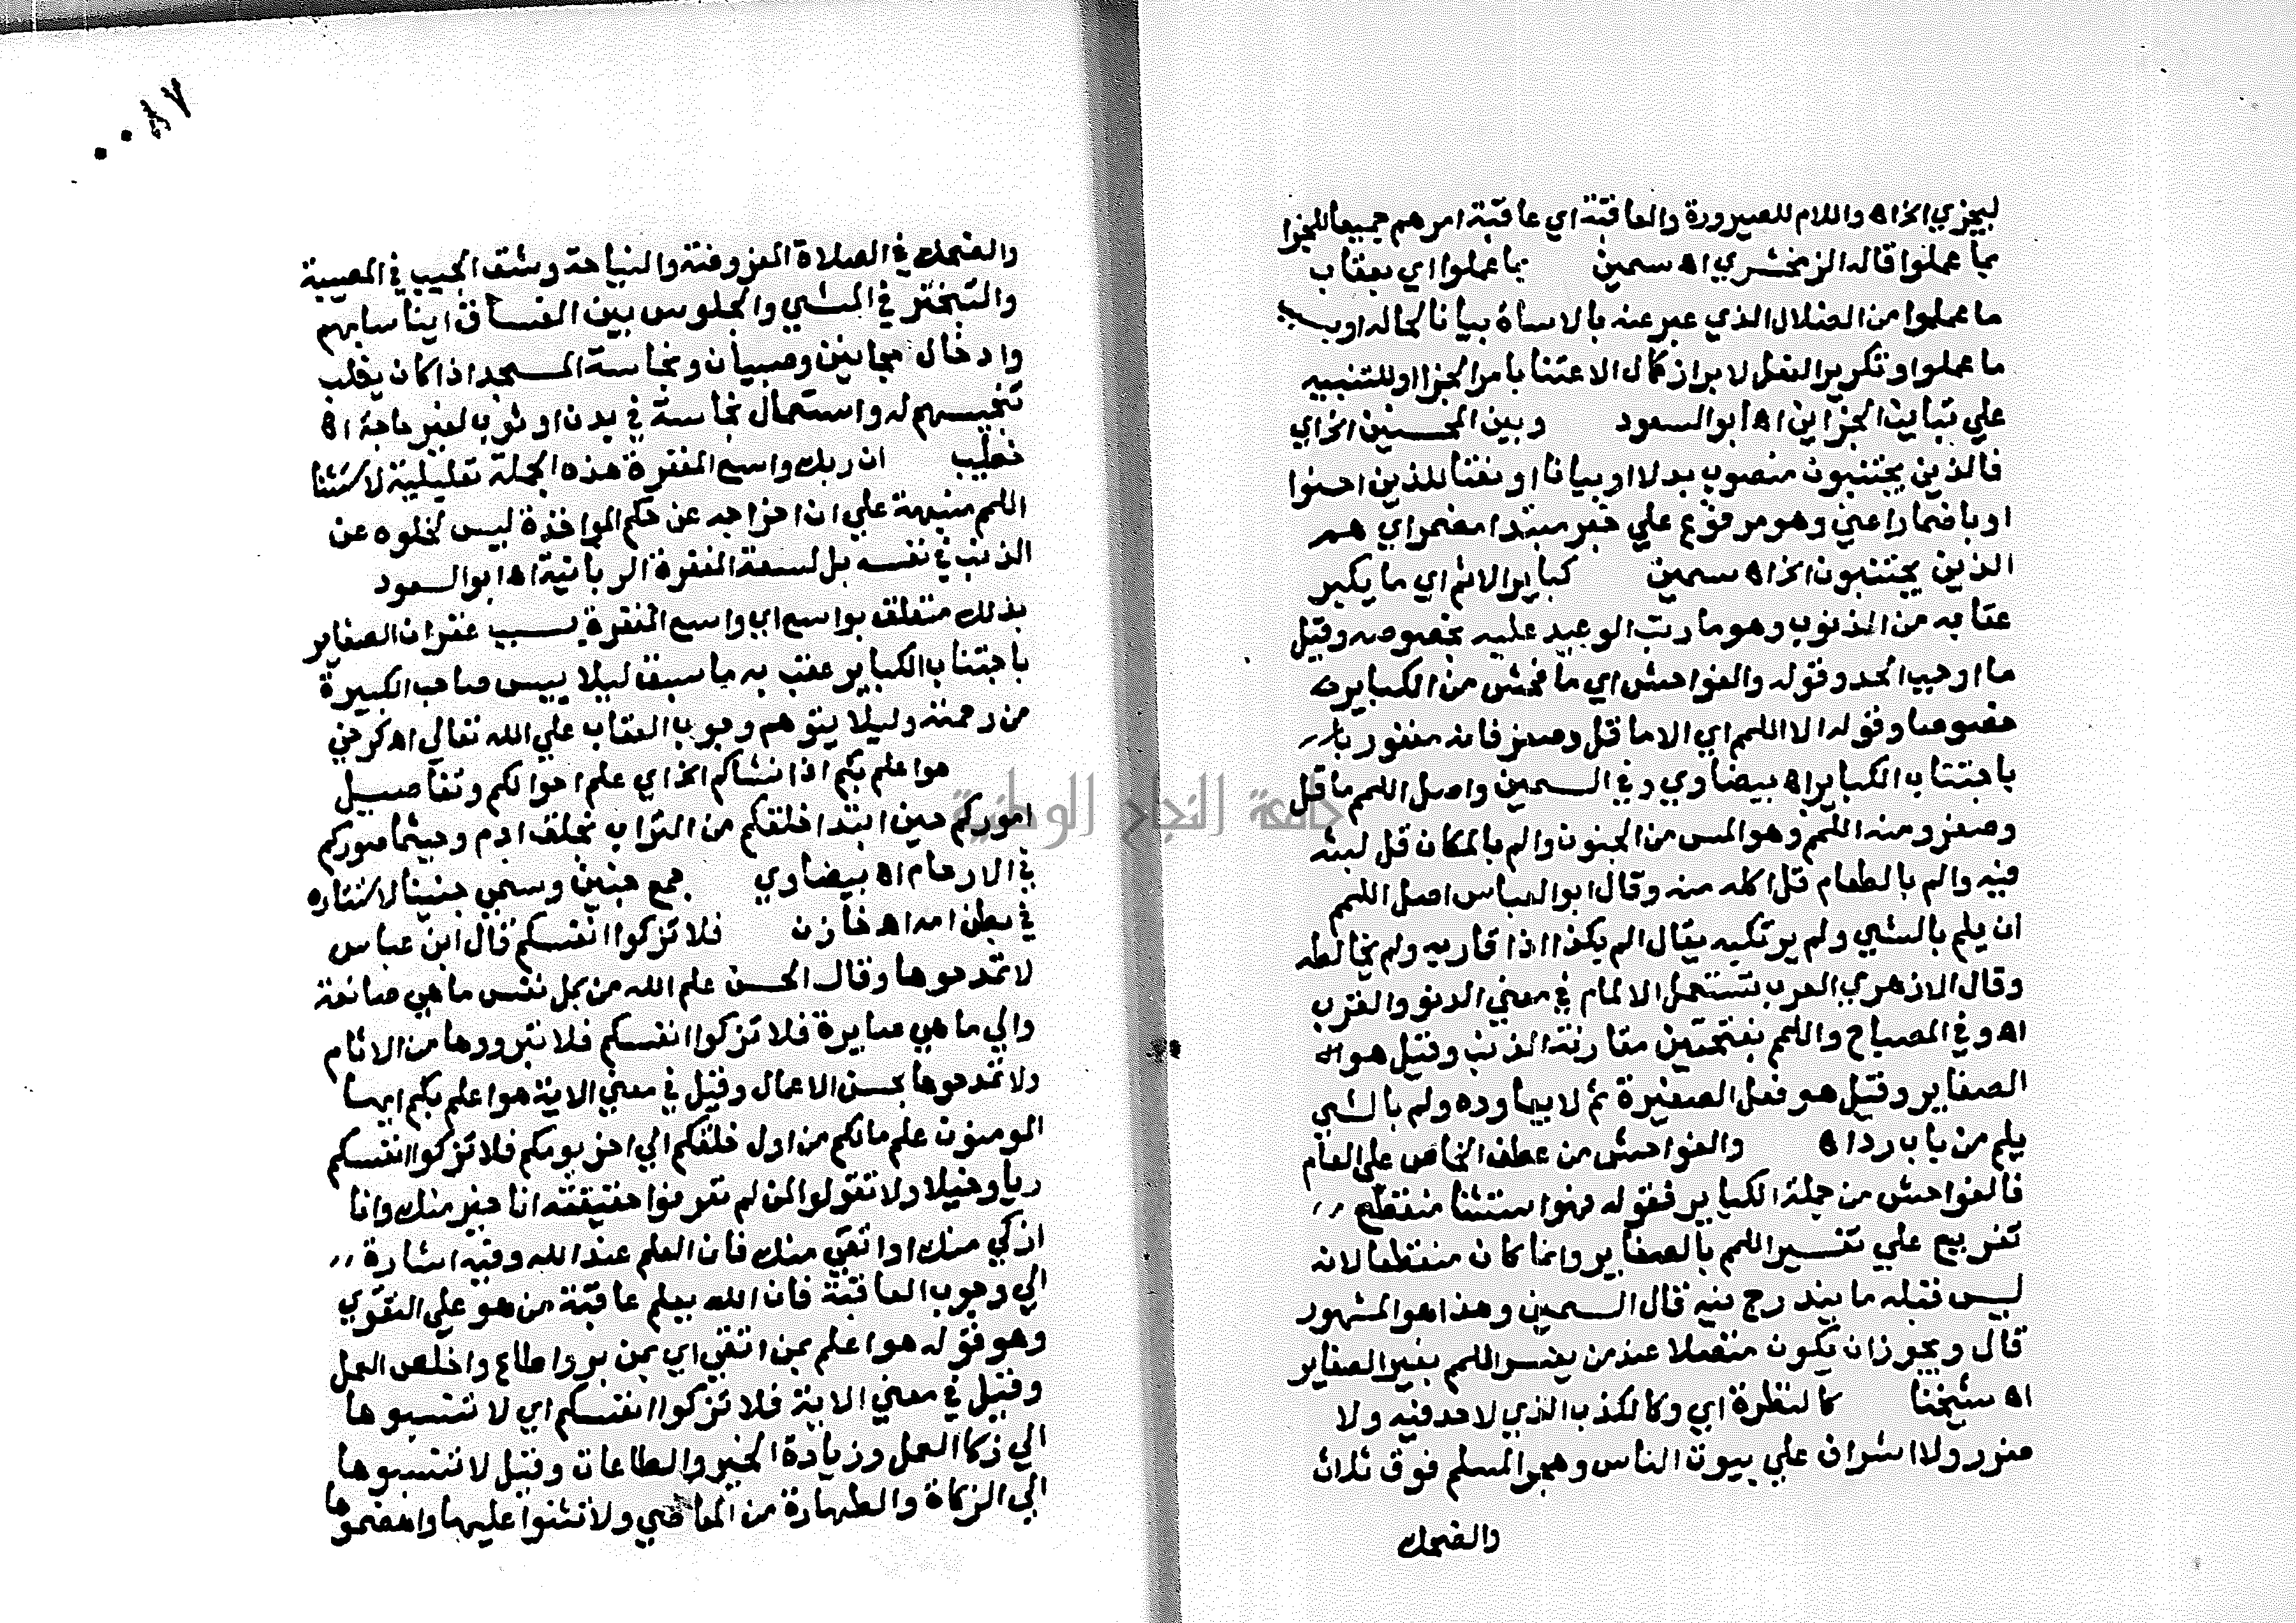 ليجزي الخ اه واللام للصيرورة والعاقبة اي عاقبة امرهم جميعا للجزا
بما عملوا قاله الزمخشري اه سمين بما عملوا اي بعقاب
ما عملوا من الضلال الذي عبر عنه بالاساة بيانا لحاله او بسبب
ما عملوا وتكرير الفعل لابراز كمال الاعتنا بامر الجزا او للتنبيه
علي تباين الجزاين اه ابو السعود وبين المحسنين الخ اي
فالذين يجتنبون منصوب بدلا او بيانا او نعتا للذين احسنوا
او باضمار اعني وهو مرفوع علي خبر مبتدا مضمر اي هم
الذين يجتنبون الخ اه سمين كباير الاثم اي ما يكبر
عقابه من الذنوب وهو ما رتب الوعيد عليه بخصوصه وقيل
ما اوجب الحد وقوله والفواحش اي ما فحش من الكباير
خصوصا وقوله الا اللمم اي الا ما قل وصغر فانه مغفور
باجتناب الكباير اه بيضاوي وفي السمين واصل اللمم ما قل
وصغر ومنه اللمم وهو المس من الجنون والم بالمكان قل لبثه
فيه والم بالطعام قل اكله منه وقال ابو العباس اصل اللمم
ان يلم بالشي ولم يرتكبه يقال الم بكذا اذا قاربه ولم يخالطه
وقال الازهري العرب تستعمل الالمام في معني الدنو والقرب
اه وفي المصباح واللمم بفتحتين مقاربة الذنب وقيل هو
الصغاير وقيل هو فعل الصغيرة ثم لا يعاوده ولم بالشي
يلم من باب رد اه والفواحش من عطف الخاص علي العام
فالفواحش من جملة الكباير فقوله فهو استثنا منقطع
تفريع علي تفسير اللمم بالصغاير وانما كان منقطعا لانه
ليس قبله ما يندرج فيه قال السمين وهذا هو المشهور
قال ويجوز ان يكون متصلا عند من يفسر اللمم بغير الصغاير
اه شيخنا كالنظرة اي وكالكذب الذي لا حد فيه ولا
ضرر ولا اشراف علي بيوت الناس وهجر المسلم فوق ثلاث
والضحك
والضحك في الصلاة المفروضة والنياحة وشق الجيب في المصيبة
والتبختر في المشي والجلوس بين الفساق ايناسا بهم
وادخال مجانين وصبيان ونجاسة المسجد اذا كان يغلب
تنجيسهم له واستعمال نجاسة في بدن او ثوب لغير حاجة اه
خطيب ان ربك واسع المغفرة هذه الجملة تعليلية لاستثنا
اللمم منبهة علي ان اخراجه عن حكم المواخذة ليس لخلوه عن
الذنب في نفسه بل لسعة المغفرة الربانية اه ابو السعود
بذلك متعلق بواسع اي واسع المغفرة بسبب غفران الصغاير
باجتناب الكباير عقب به ما سبق ليلا ييس صاحب الكبيرة
من رحمته وليلا يتوهم وجوب العقاب علي الله تعالي اه كرخي
هو اعلم بكم اذ انشاكم الخ اي علم احوالكم وتفاصيل
اموركم حين ابتدا خلقكم من التراب بخلق ادم وحيثما صوركم
في الارحام اه بيضاوي جمع جنين وسمي جنينا لاستتاره
في بطن امه اه خازن فلا تزكوا انفسكم قال ابن عباس
لا تمدحوها وقال الحسن علم الله من كل نفس ما هي صانعة
والي ما هي صايرة فلا تزكوا انفسكم فلا تبروودها من الاثام
ولا تمدحوها بحسن الاعمال وقيل في معني الاية هو اعلم بكم ايها
المومنون علم مالكم من اول خلقكم الي اخر يومكم فلا تزكوا انفسكم
ريا وخيلا ولا تقولوا لمن لم تعرفوا حقيقته انا خير منك وانا
ازكي منك او اتقي منك فان العلم عند الله وفيه اشارة
الي وجوب العاقبة فان الله يعلم عاقبة من هو علي التقوي
وهو قوله هو اعلم بمن اتقي اي بمن بر واطاع واخلص العمل
وقيل في معني الاية فلا تزكوا انفسكم اي لا تنسبوها
الي زكا العمل وزيادة الخير والطاعات وقيل لا تنسبوها
الي الزكاة والطهارة من المعاصي ولا تثنوا عليها واهضموها
جامعة النجاح الوطنية